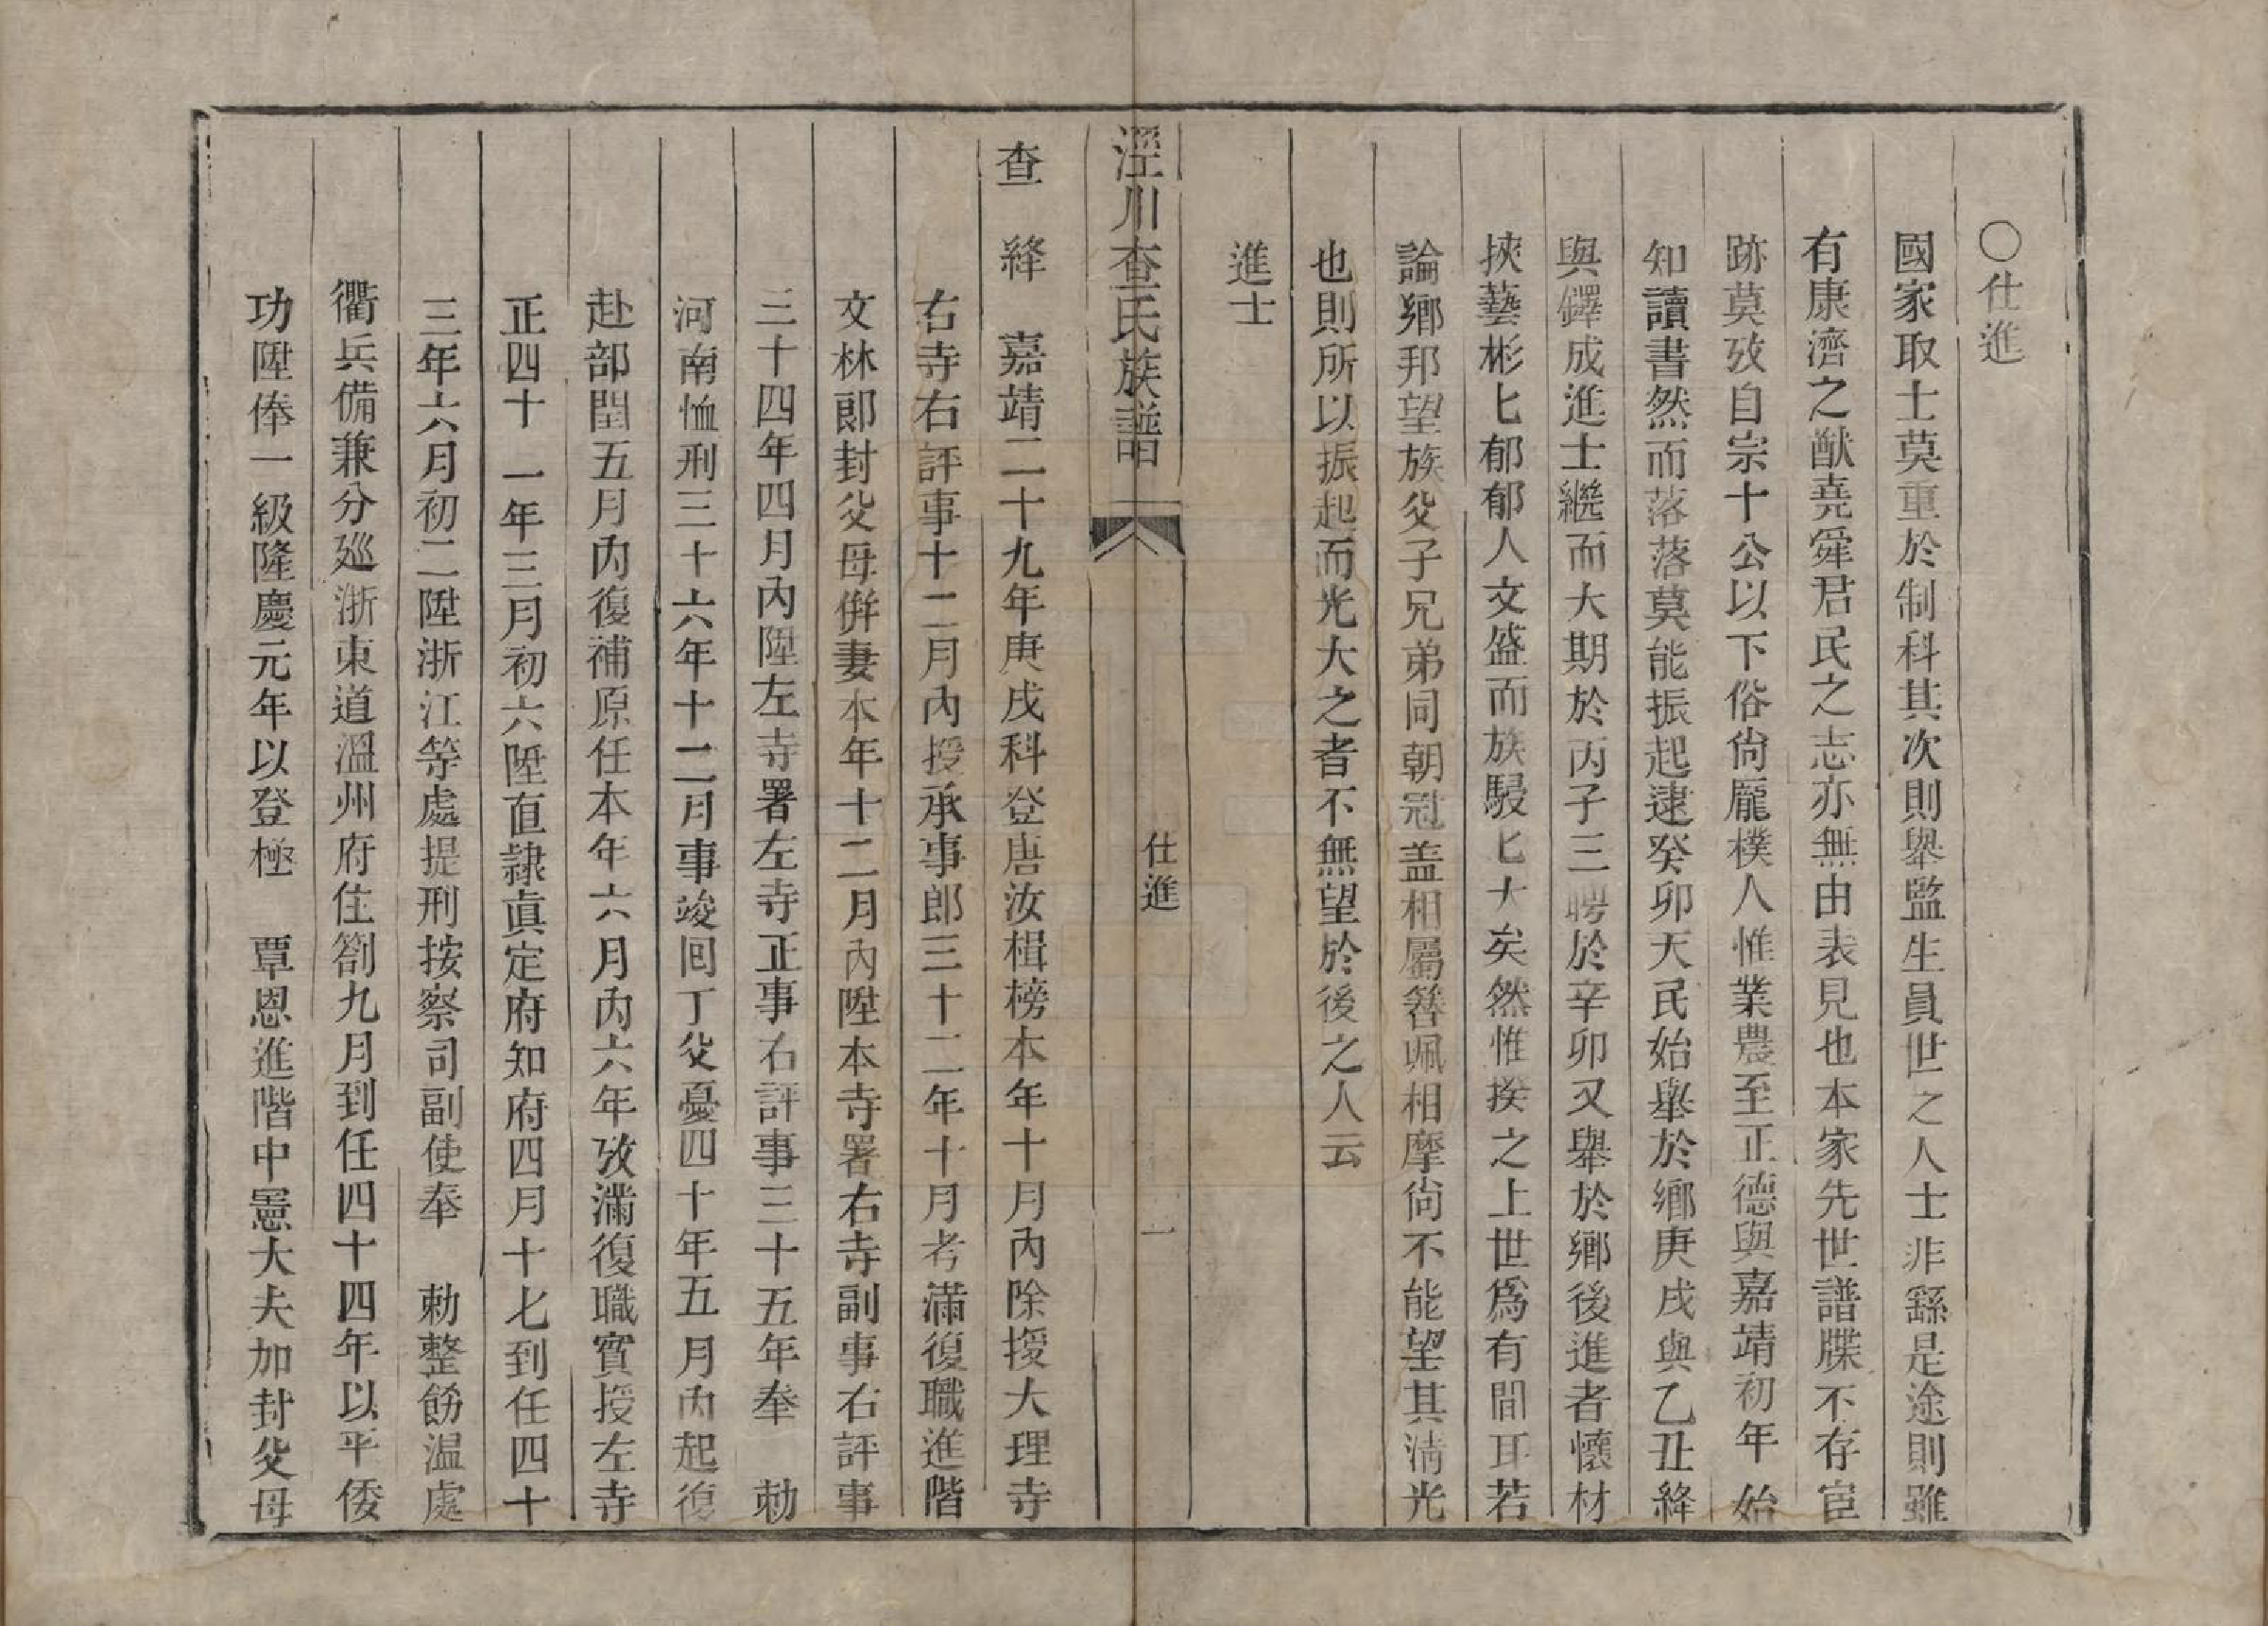 ○仕進
國家取士莫重於制科其次則舉監生員世之人士非繇是途則雖
有康濟之猷堯舜君民之志亦無由表見也本家先世譜牒不存宦
跡莫攷自宗十公以下俗尚龐樸人惟業農至正德與嘉靖初年始
知讀書然而落落莫能振起逮癸卯天民始舉於鄉庚戌與乙丑絳
與鐸成進士繼而大期於丙子三聘於辛卯又舉於鄉後進者懷材
挾藝彬匕郁郁人文盛而族駸匕大矣然惟揆之上世爲有間耳若
論鄉邦望族父子兄弟同朝冠盖相屬簪珮相摩尚不能望其淸光
也則所以振起而光大之者不無望於後之人云
進士
涇川查氏族譜 仕進 一
查 絳 嘉靖二十九年庚戌科登唐汝楫榜本年十月內除授大理寺
右寺右評事十二月內授承事郎三十二年十月考滿復職進階
文林郎封父母併妻本年十二月內陞本寺署右寺副事右評事
三十四年四月內陞左寺署左寺正事右評事三十五年奉 勅
河南恤刑三十六年十二月事竣回丁父憂四十年五月內起復
赴部閏五月內復補原任本年六月內六年攷滿復職實授左寺
正四十一年三月初六陞直隸真定府知府四月十七到任四十
三年六月初二陞浙江等處提刑按察司副使奉 勅整飭温處
衢兵備兼分廵浙東道溫州府住劄九月到任四十四年以平倭
功陞俸一級隆慶元年以登極 覃恩進階中憲大夫加封父母